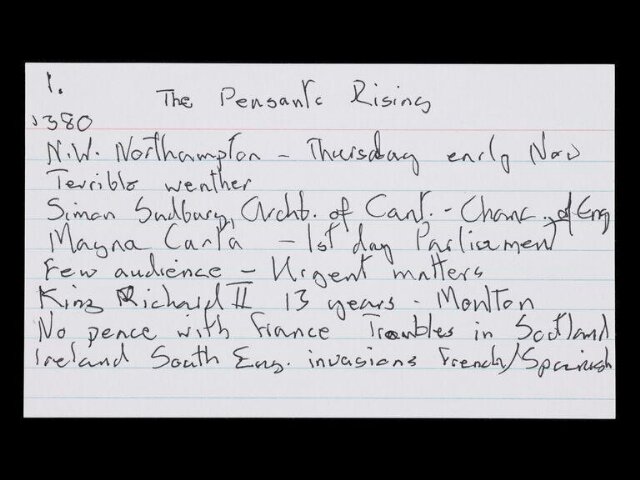 1.
The Peasants Rising
1380
N.W. Northampton - Thursday early Nov
Terrible weather
Simon Sudbury, Archb. of Cant. - Chanc. of Eng
Magna Carta - 1st day Parliament
Few audience - Urgent matters
King Richard II 13 years - Moulton
No peace with France Troubles in Scotland
Ireland South Eng. invasions French/Spanish